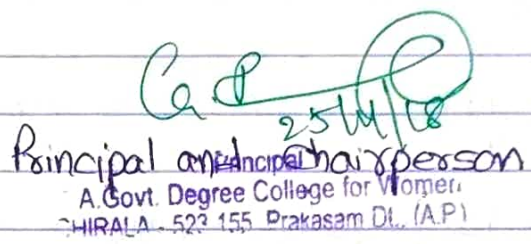 25/11/18
Principal and Chairperson
Principal
A.Govt. Degree College for Women
CHIRALA - 523 155 Prakasam Dt., (A.P)